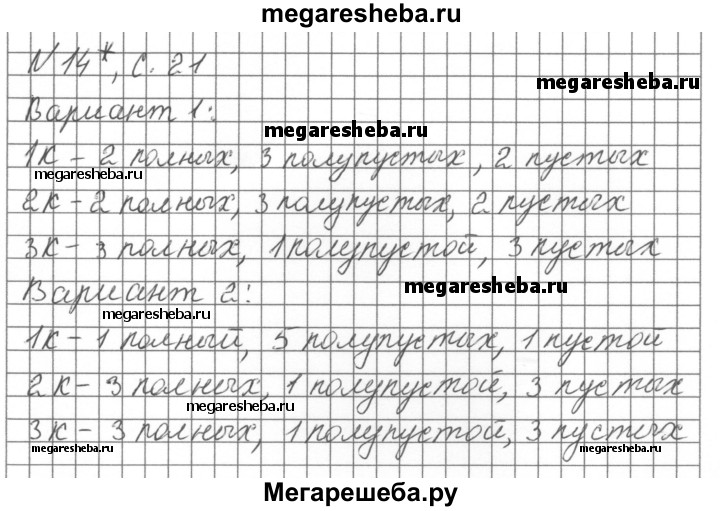 megaresheba.ru
N 14*, с. 21
megaresheba.ru
Вариант 1:
megaresheba.ru
1к – 2 полных, 3 полупустых, 2 пустых
megaresheba.ru
2к – 2 полных, 3 полупустых, 2 пустых
3к – 3 полных, 1 полупустой, 3 пустых
Вариант 2:
megaresheba.ru
megaresheba.ru
1к – 1 полный, 5 полупустых, 1 пустой
2к – 3 полных, 1 полупустой, 3 пустых
megaresheba.ru
3к – 3 полных, 1 полупустой, 3 пустых
megaresheba.ru
megaresheba.ru
Мегарешеба.ру